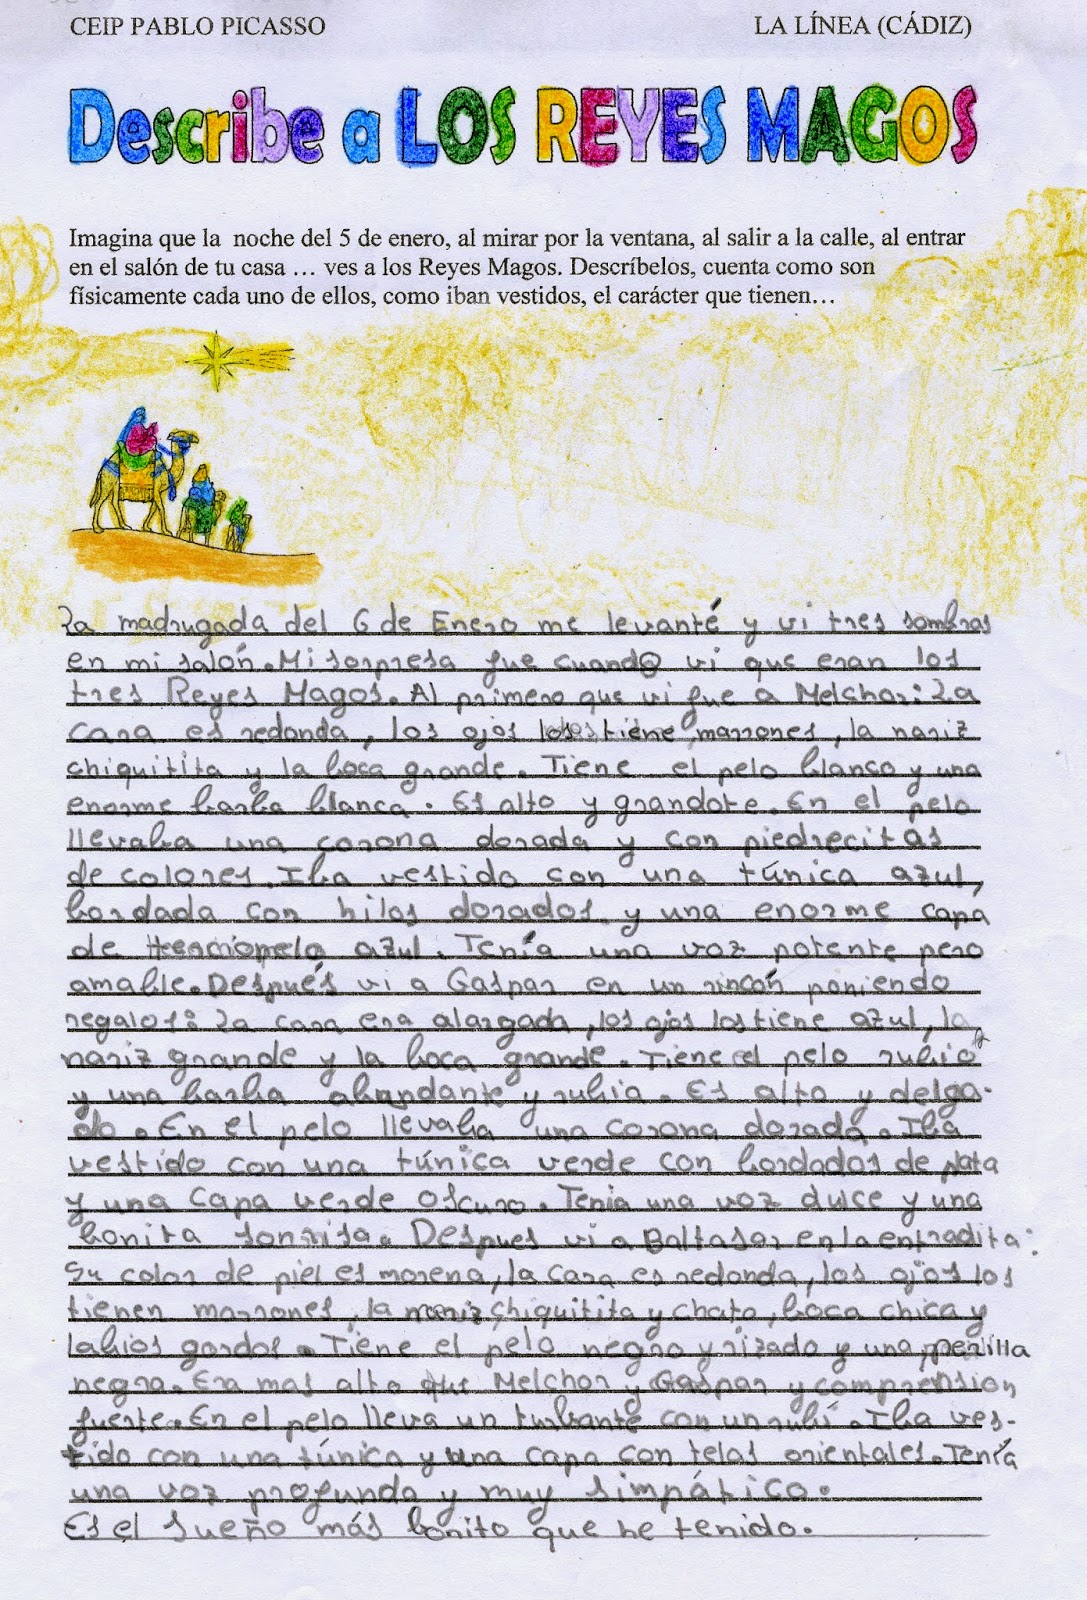 CEIP PABLO PICASSO LA LÍNEA (CÁDIZ)
Describe a LOS REYES MAGOS
Imagina que la noche del 5 de enero, al mirar por la ventana, al salir a la calle, al entrar
en el salón de tu casa … ves a los Reyes Magos. Descríbelos, cuenta como son
físicamente cada uno de ellos, como iban vestidos, el carácter que tienen…
La madrugada del 6 de Enero me levanté y vi tres sombras
en mi salón. Mi sorpresa fue cuando vi que eran los
tres Reyes Magos. Al primero que vi fue a Melchor: La
cara es redonda, los ojos los tiene marrones, la nariz
chiquitita y la boca grande. Tiene el pelo blanco y una
enorme barba blanca. Es alto y grandote. En el pelo
llevaba una corona dorada y con piedrecitas
de colores. Iba vestido con una túnica azul,
bordada con hilos dorados y una enorme capa
de terciopelo azul. Tenía una voz potente pero
amable. Después vi a Gaspar en un rincón poniendo
regalos: La cara era alargada, los ojos los tiene azul, la
nariz grande y la boca grande. Tiene el pelo rubio
y una barba abundante y rubia. Es alto y delga-
do. En el pelo llevaba una corona dorada. Iba
vestido con una túnica verde con bordados de plata
y una capa verde oscuro. Tenia una voz dulce y una
bonita sonrisa. Despues vi a Baltasar en la entradita:
Su color de piel es morena, la cara es redonda, los ojos los
tienen marrones, la nariz chiquitita y chata, boca chica y
labios gordos. Tiene el pelo negro y rizado y una perilla
negra. Era mas alto que Melchor y Gaspar y comprension
fuerte. En el pelo lleva un turbante con un rubí. Iba ves-
tido con una túnica y una capa con telas orientales. Tenía
una voz profunda y muy simpático.
Es el sueño más bonito que he tenido.